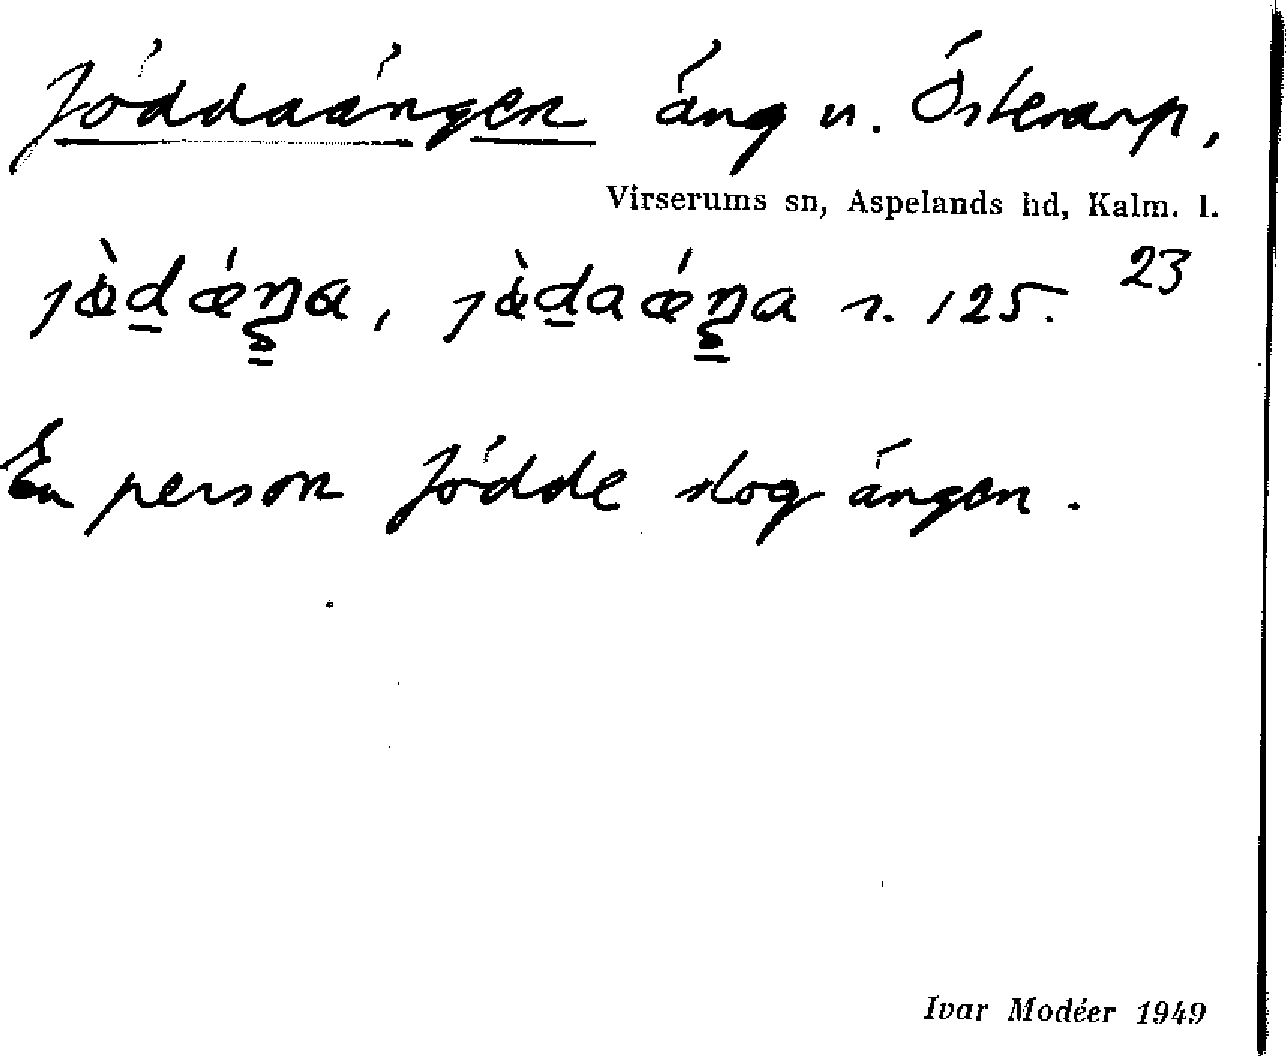 Jöddaängen äng u. Österarp,
Virserums sn, Aspelands hd, Kalm. l.
23
r. 125.
En person Jödde slog ängen.
Ivar Modéer 1949